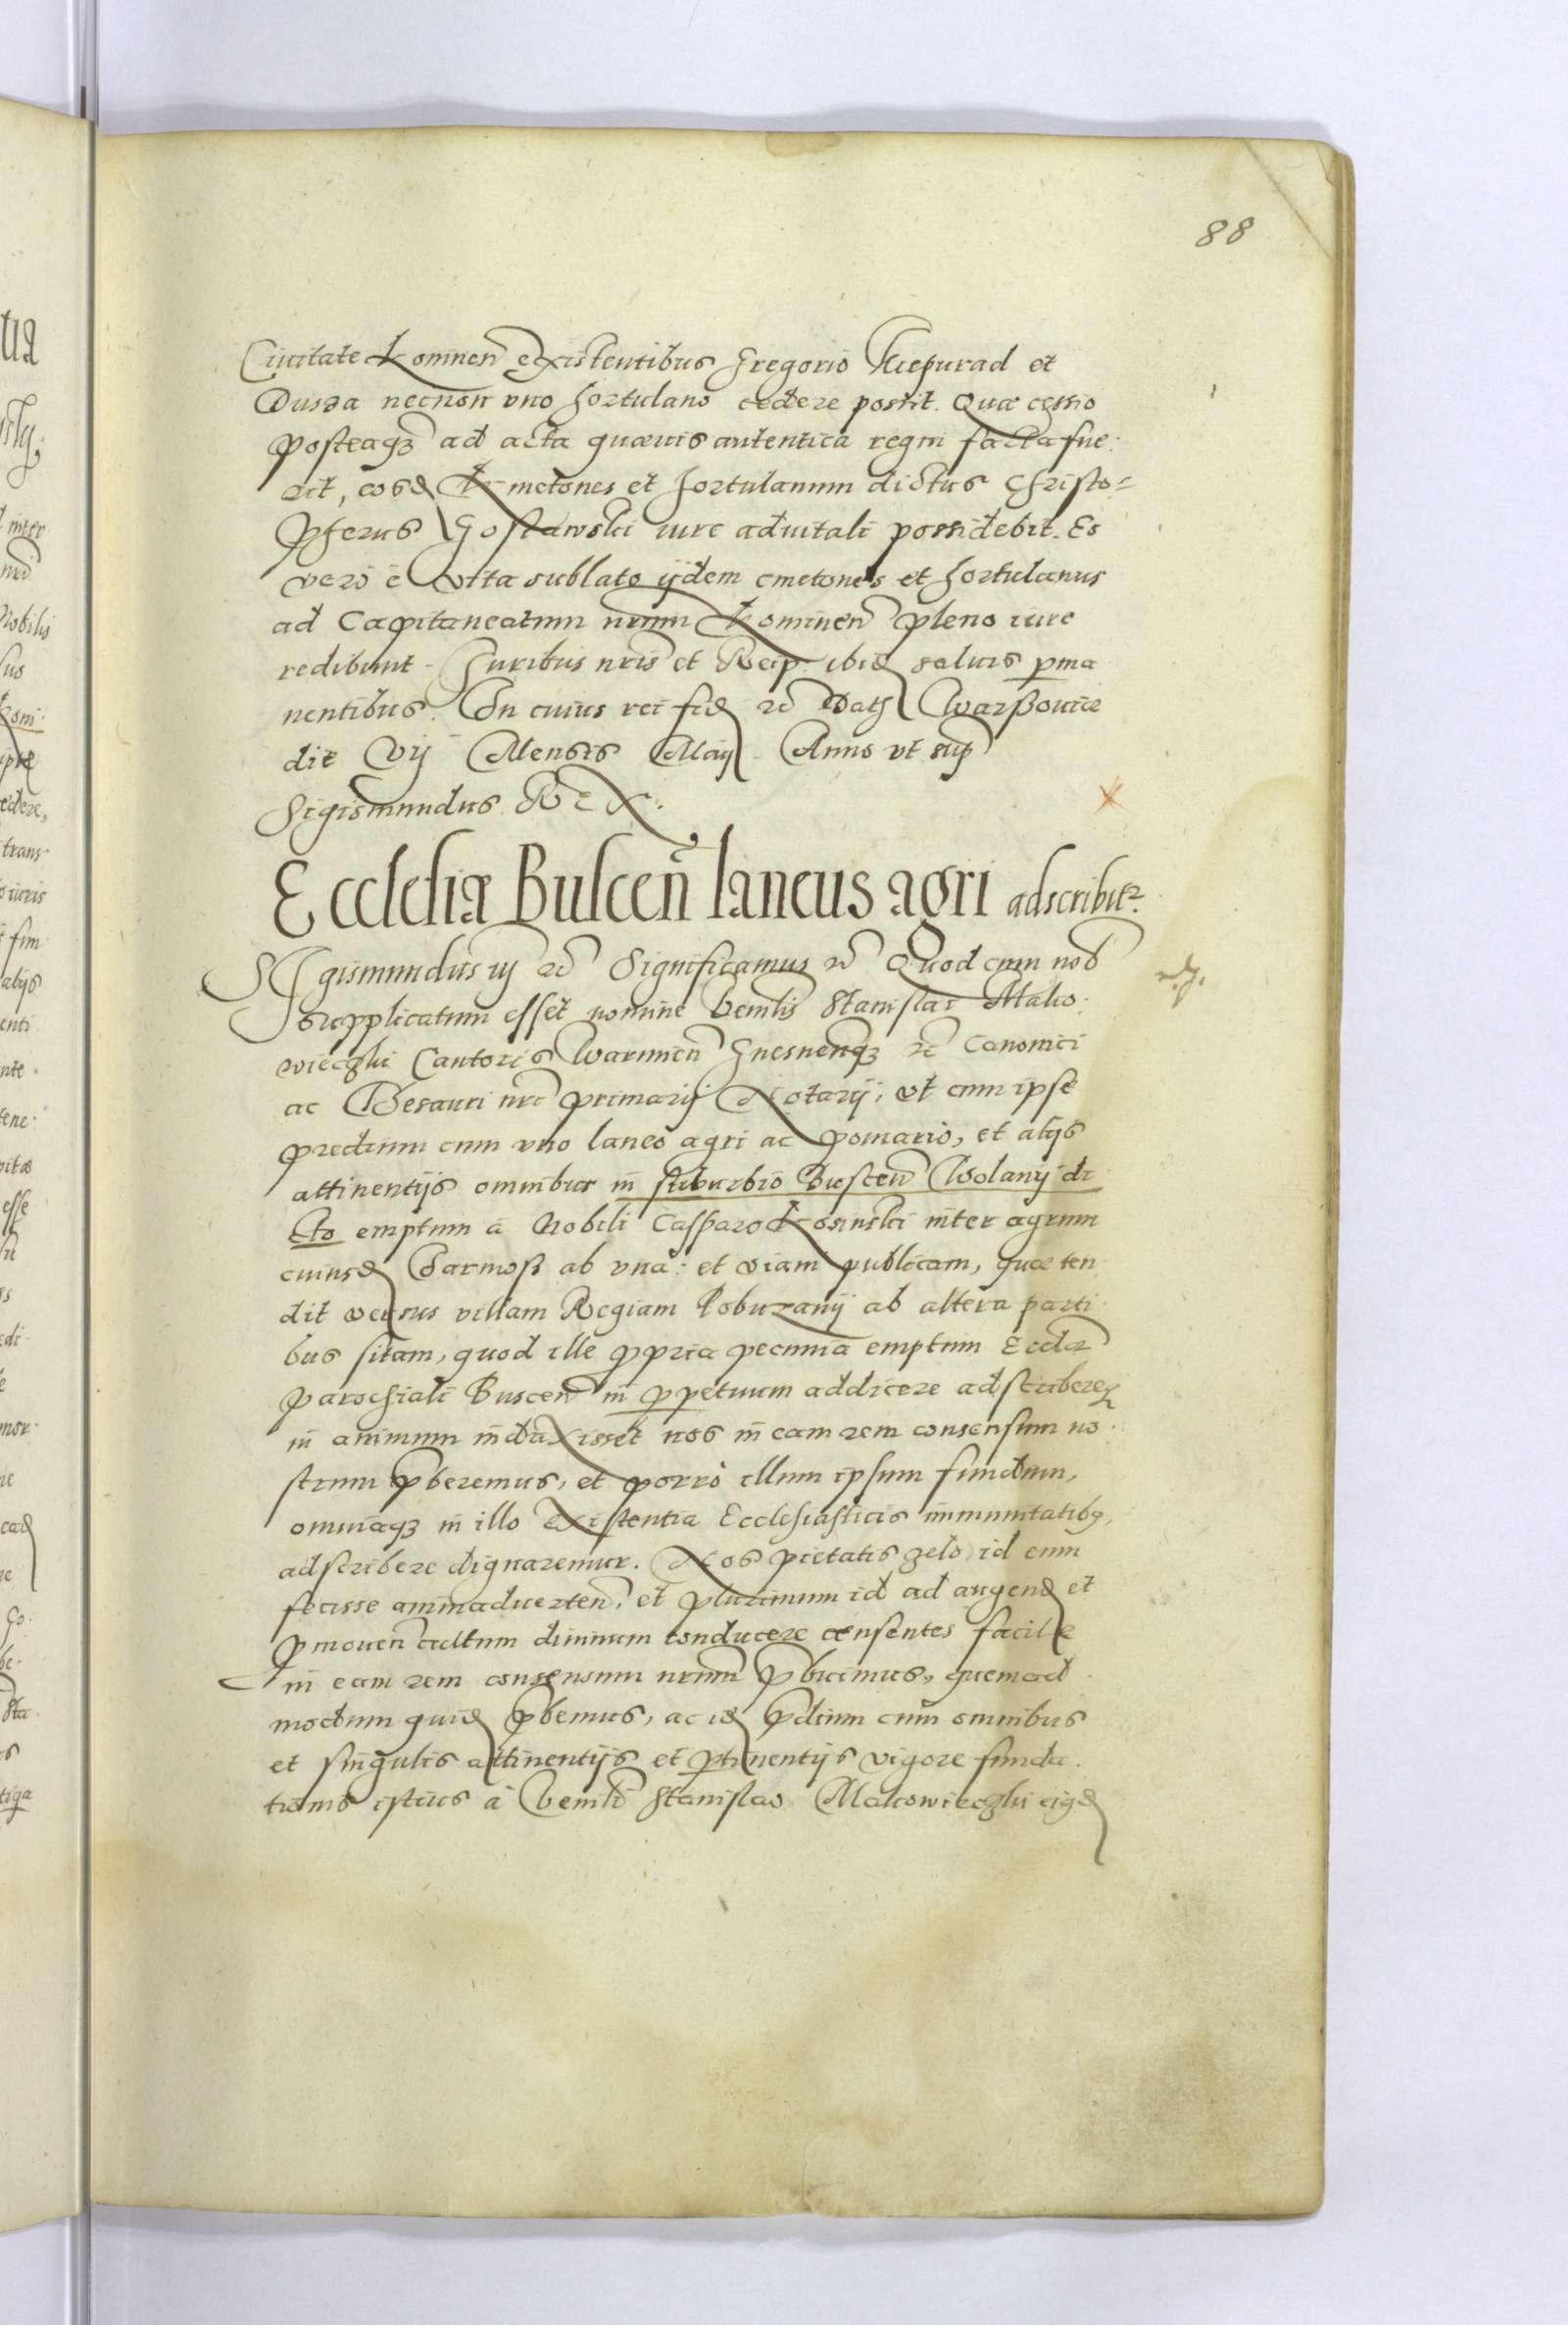 88
Ciuitate Koninen existentibus Gregorio Kiepurad et
Dusza necnon vno hortulano cedere possit. Quæ cessio
posteaq3 ad acta quæuis autentica regni facta fue:
rit, eosd Kmetones et hortulanum dictus Christo=
pherus Goslawski iure aduitali possidebit. Eo
vero è vita sublato ijdem cmetones et hortulanus
ad Capitaneatum nrum Koninen pleno iure
redibunt. Iuribus nris et Reip. ibid saluis pma
nentibus. In cuius rei fid etc Dat Warssouiæ
die Vij Mensis Maij. Anno vt sup
Sigismundus Rex.
Ecclesiæ Buscen laneus agri adscribitr.
Sigismundus iij etc Significamus etc Quod cum nob
supplicatum esset nomine Venlis Stanislai Mako:
wieczki Cantoris Warmien Gnesnenq3 etc Canonici
ac Thesauri nri primarij Notarij, vt cum ipse
predium cum vno laneo agri ac pomario, et alijs
attinentijs omnibus in suburbio Buscen Wolanij di
cto emptum à Nobili Casparo Kosinski inter agrum
cuiusd Jarmoss ab vna: et viam publicam, quæ ten
dit versus villam Regiam Robuzanij ab altera parti
bus sitam, quod ille ppria pecunia emptum Eccliæ
parochiali Buscen in ppetuum addicere adscribereq
in animum induxisset nos in eam rem consensum no
strum pberemus, et porrò illum ipsum fundum,
omniaq3 in illo existentia Ecclesiasticis immunitatibq,
adscribere dignaremur. Nos pietatis zelo id eum
fecisse animaduerten, et plurimum id ad augend et
pmouen cultum diuinum conducere censentes facile
in eam rem consensum nrum pbuimus, quemad
modum quid pbemus, ac id pdium cum omnibus
et singulis attinentijs et ptinentijs vigore funda
tionis istius à Venli Stanislao Makowieczki eigd